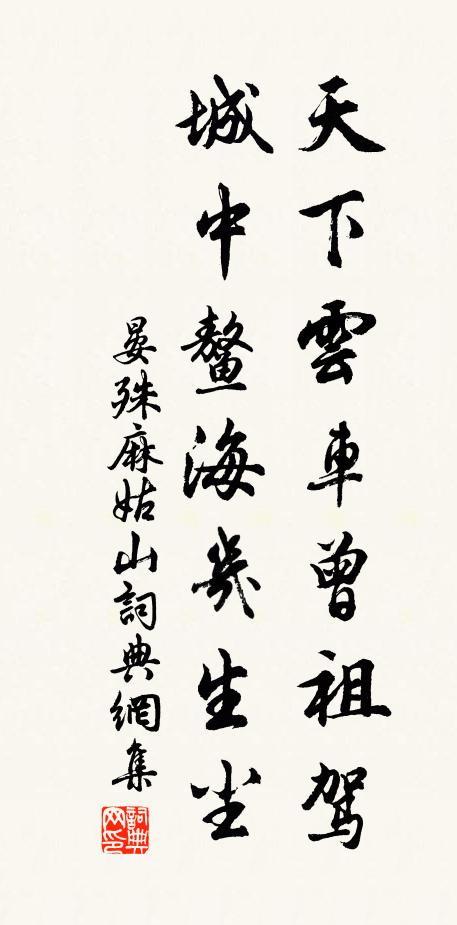 天下雲車曾祖駕
城中鼇海幾生尘
晏殊麻姑山詞典網集
詞典网印